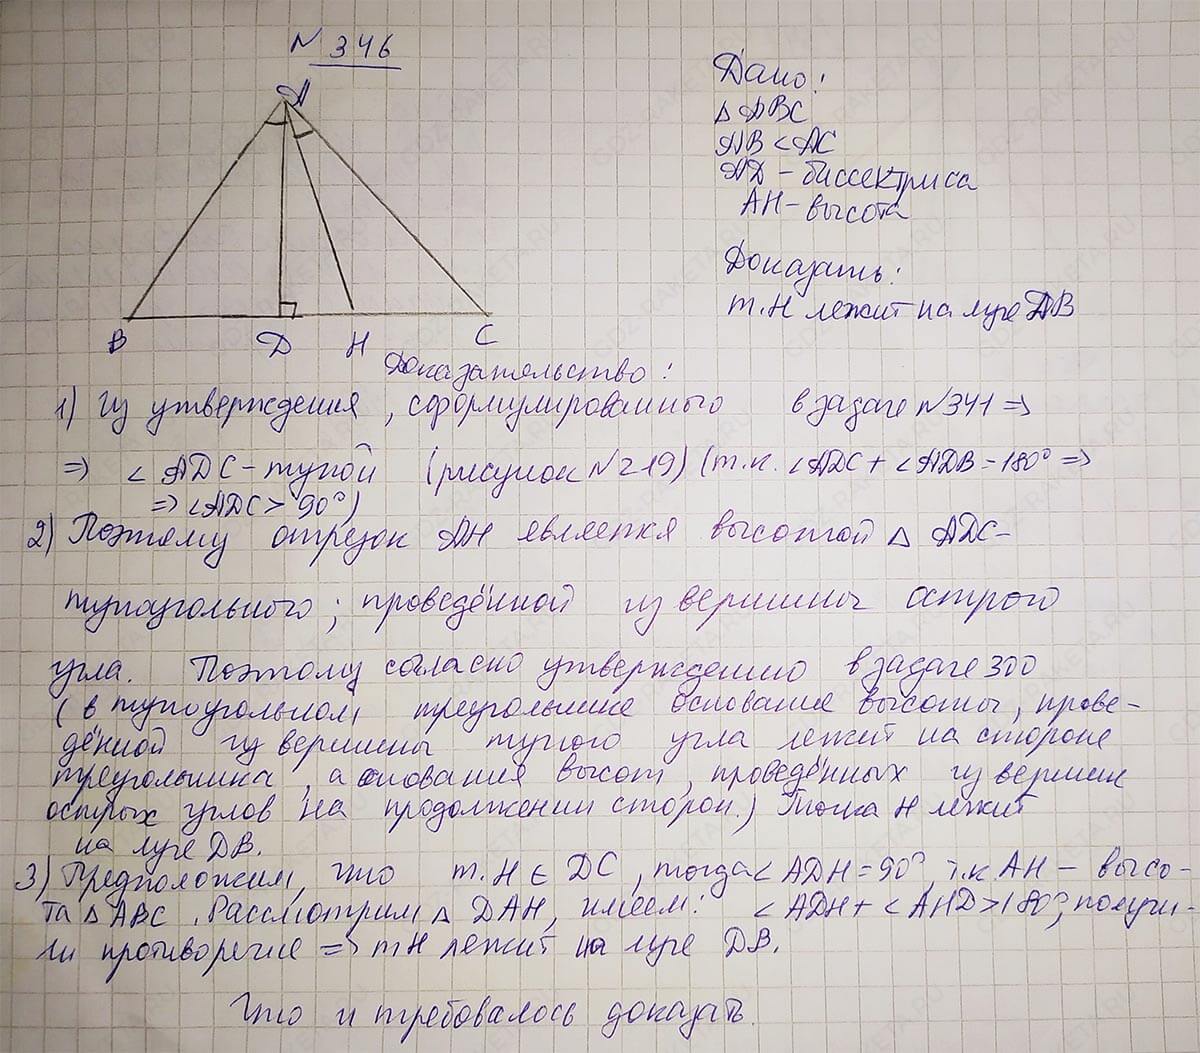 N 346
A
B
D
H
C
Дано:
△ ABC
AB < AC
AD – биссектриса
AH – высота
Доказать:
т. H лежит на луче DB
Доказательство:
1) Из утверждения, сформулированного в задаче №341 =>
=> ∠ADC – тупой (рисунок №219) (т.к. ∠ADC + ∠ADB = 180° =>
=> ∠ADC > 90°)
2) Поэтому отрезок AH является высотой △ ADC –
тупоугольного; проведённой из вершины острого
угла. Поэтому согласно утверждению в задаче 300
(в тупоугольном треугольнике основание высоты, прове-
дённой из вершины тупого угла лежит на стороне
треугольника, а основания высот, проведённых из вершин
острых углов на продолжении сторон.) Точка H лежит
на луче DB.
3) Предположим, что т. H ∈ DC, тогда ∠ADH = 90°, т.к AH – высо-
та △ ABC. Рассмотрим △ DAH, имеем: ∠ADH + ∠AHD > 180°, получи-
ли противоречие => т H лежит на луче DB.
Что и требовалось доказать.
GDZ-RAKETA.RU